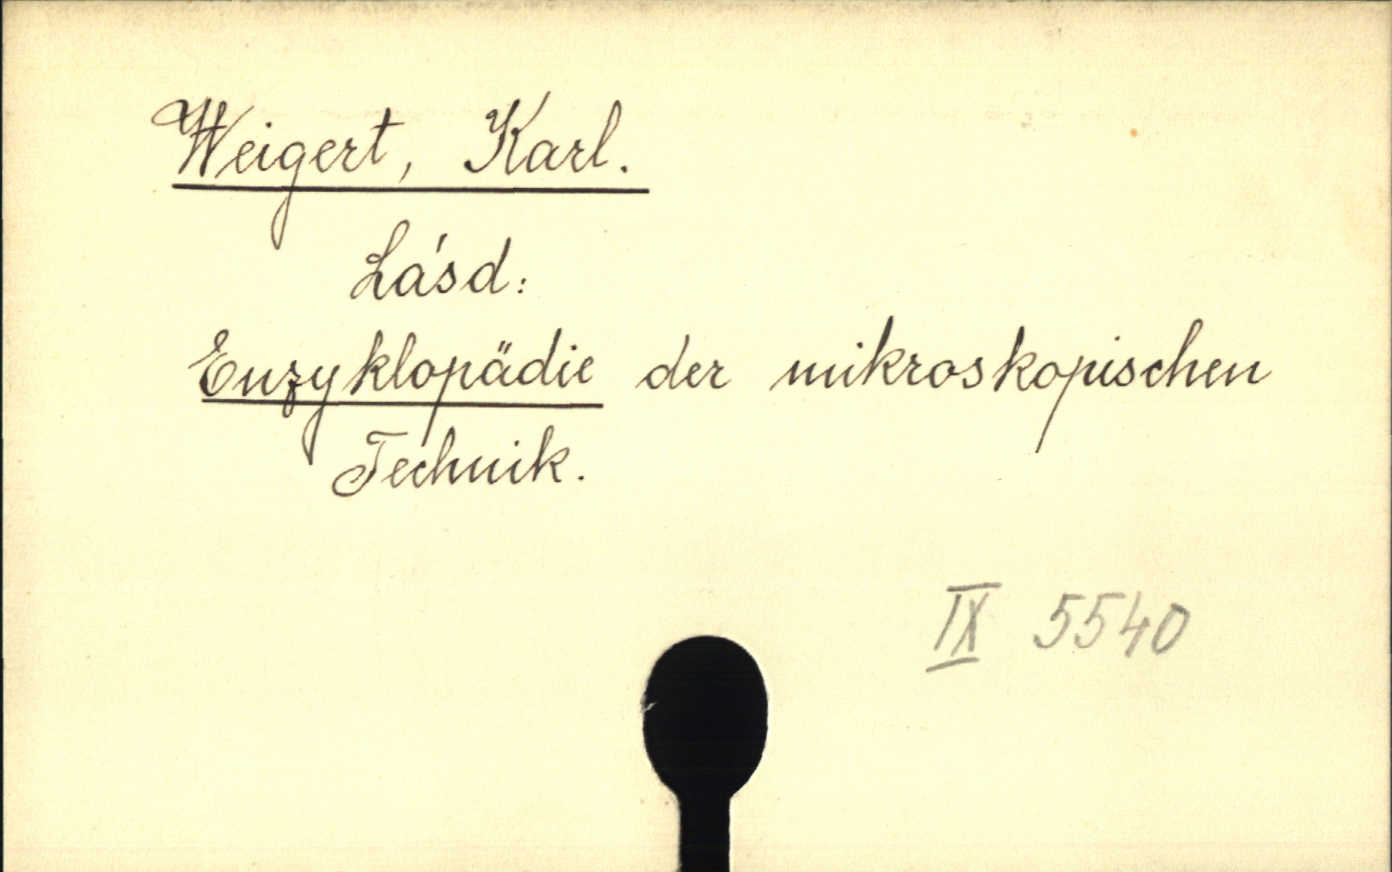 Weigert, Karl.
Lásd:
Enzyklopädie der mikroskopischen
Technik.
IX 5540